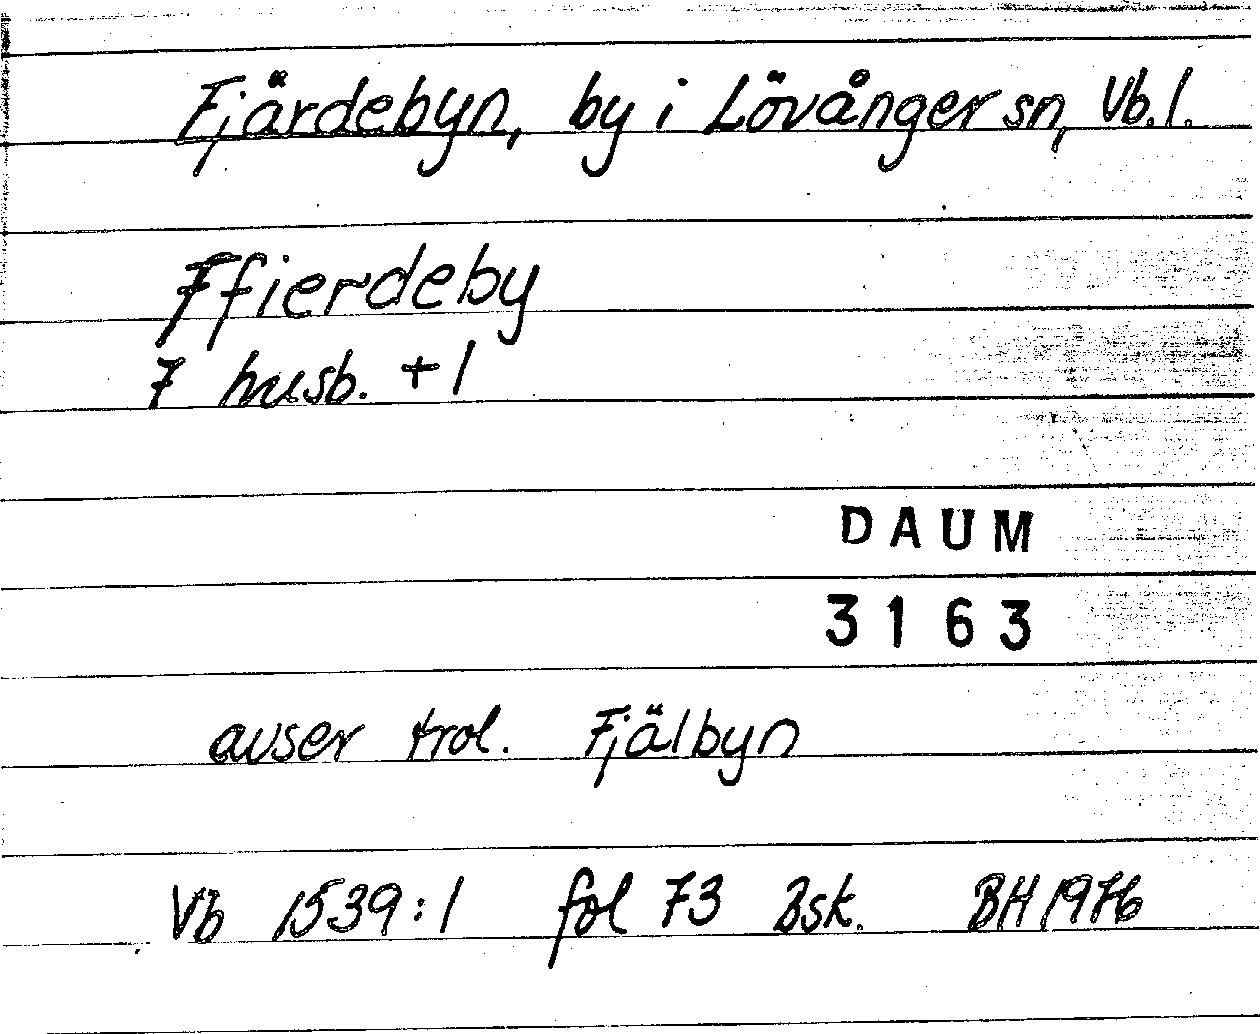 Fjärdebyn, by i Lövånger sn, Vb. l.
Ffierdeby
7 husb. + 1
DAUM
3163
avser trol. Fjälbyn
Vb 1539:1 fol 73 Bsk. BH 1976